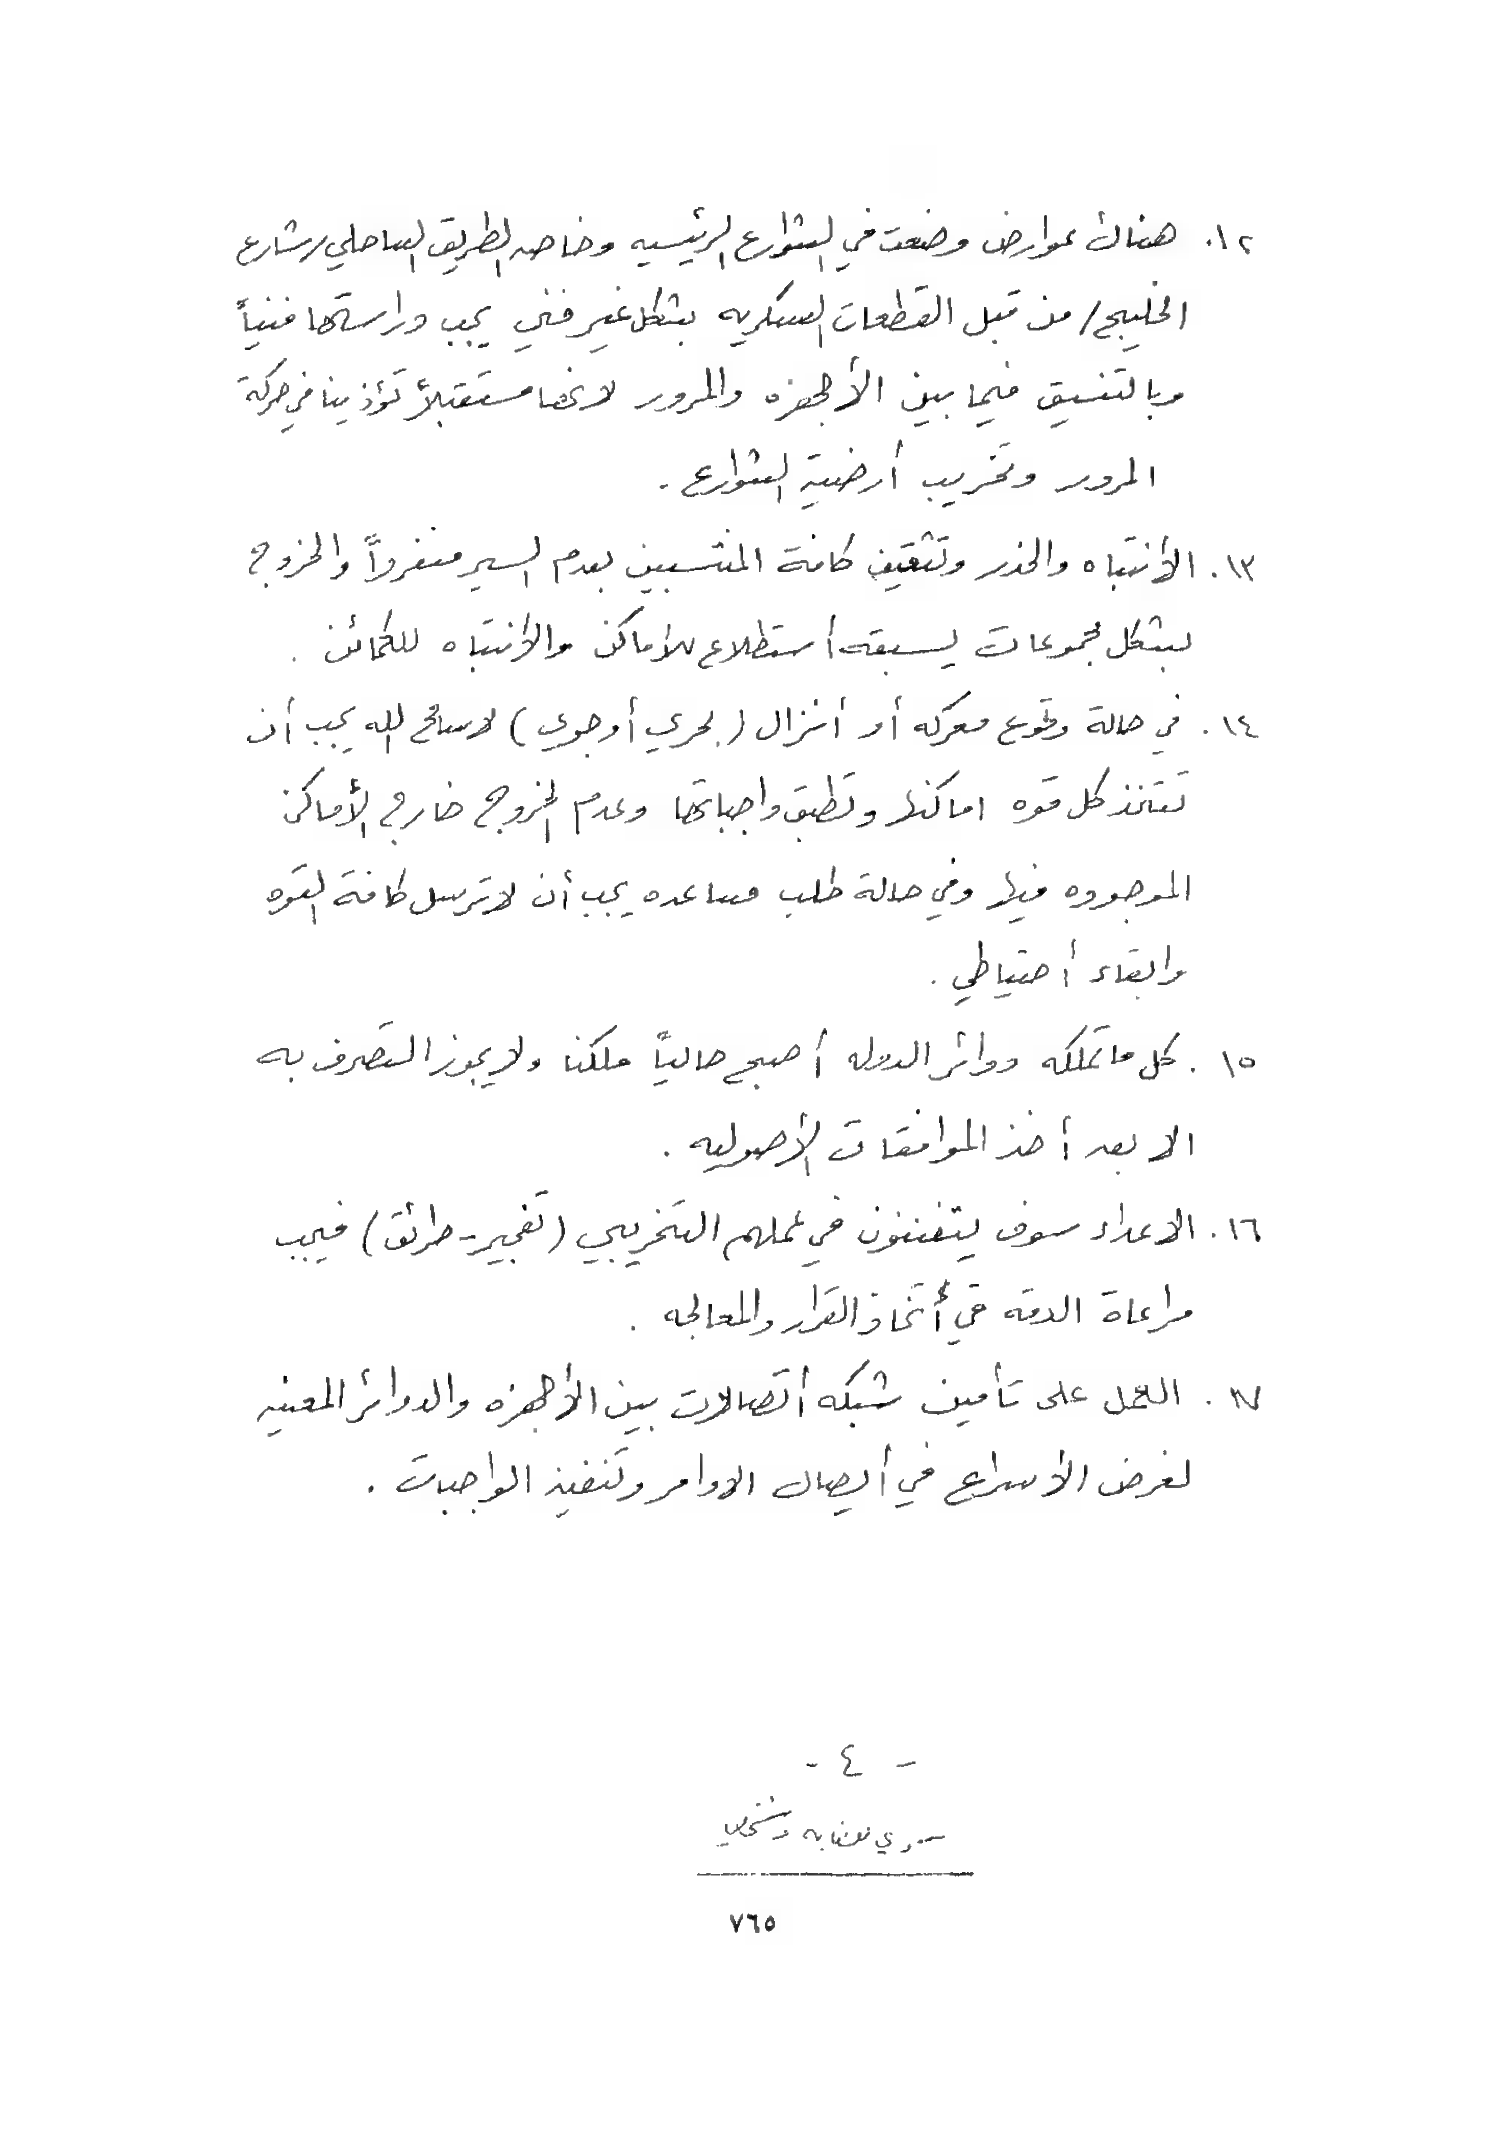 ١٢. هناك عوارض وضعت في الشوارع الرئيسيه وخاصه الطريق الساحلي/شارع
الخليج/ من قبل القطعات العسكريه بشكل غير فني يجب دراستها فنياً
وبالتنسيق فيما بين الأجهزه والمرور لانها مستقبلاً تؤذينا في حركة
المرور وتخريب أرضية الشوارع.
١٣. الأنتباه والحذر وتثقيف كافة المنتسبين بعدم السير منفرداً والخروج
بشكل مجموعات يسبقه أستطلاع للأماكن والأنتباه للكمائن.
١٤. في حالة وقوع معركه أو أنزال (بحري أو جوي) لاسامح الله يجب أن
تتخذ كل قوه اماكنها وتطبق واجباتها وعدم الخروج خارج الأماكن
الموجوده فيها وفي حالة طلب مساعده يجب أن لاترسل كافة القوه
وابقاء أحتياطي.
١٥. كل ماتملكه دوائر الدوله أصبح حالياً ملكنا ولايجوز التصرف به
الا بعد أخذ الموافقات الأصوليه.
١٦. الاعداء سوف يتفننون في عملهم التخريبي (تفجير - حرائق) فيجب
مراعاة الدقه في أتخاذ القرار والمعالجه.
١٧. العمل على تأمين شبكه أتصالات بين الأجهزه والدوائر المعنيه
لغرض الأسراع في أيصال الاوامر وتنفيذ الواجبات.
- ٤ -
سري للغايه وشخصي
٧٦٥